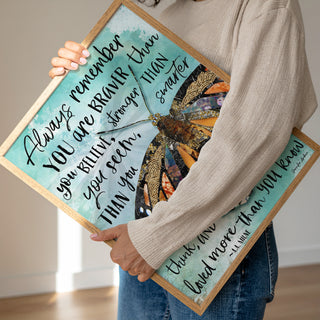 Always remember
YOU are BRAVER than
you BELIEVE, stronger THAN
you seem, smarter
THAN you
think AN
loved more than you know